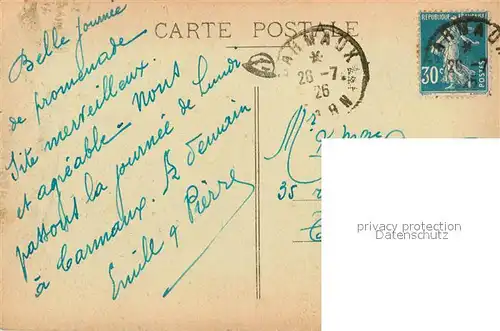 CARTE POSTALE
Belle journée
de promenade
Site merveilleux
et agréable. Nous
passons la journée de lundi
à Carmaux. A demain
Emile & Pierre
CARMAUX
26-7
26
TARN
RÉPUBLIQUE FRANÇAISE
30c
POSTES
ARMAUX
35
privacy protection
Datenschutz